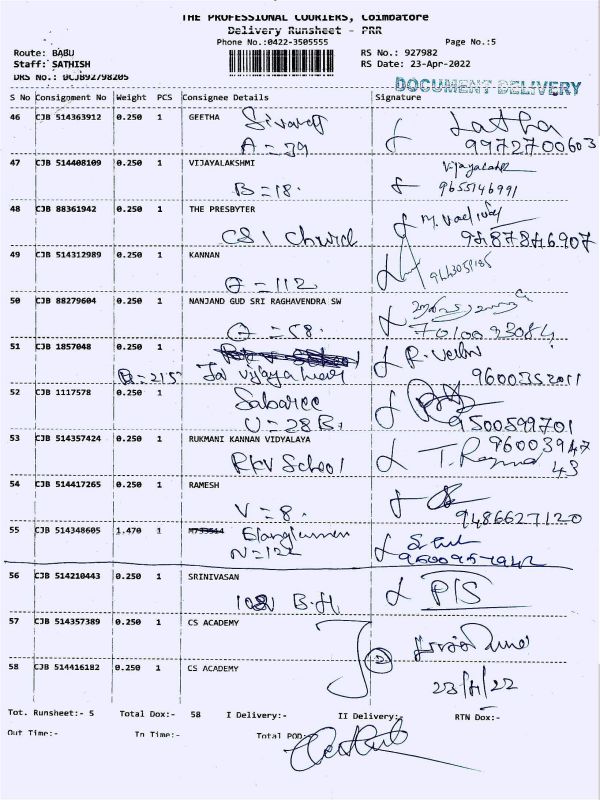 THE PROFESSIONAL COURIERS, Coimbatore
Delivery Runsheet - PRR
Phone No.:0422-3505555 Page No.:5
Route: BABU RS No.: 927982
Staff: SATHISH RS Date: 23-Apr-2022
DRS No.: DCJB92798205
DOCUMENT DELIVERY
S No Consignment No Weight PCS Consignee Details Signature
46 CJB 514363912 0.250 1 GEETHA Latha
A = 39 9972700603
47 CJB 514408109 0.250 1 VIJAYALAKSHMI
B = 18. 9655146991
48 CJB 88361942 0.250 1 THE PRESBYTER
CSI Church 9487846907
49 CJB 514312989 0.250 1 KANNAN
= 112
50 CJB 88279604 0.250 1 NANJAND GUD SRI RAGHAVENDRA SW
= 58. 7010093084
51 CJB 1857048 0.250 1
= 215 Jai Vijaya 9600352011
52 CJB 1117578 0.250 1 Sabaree
U = 28 B. 9500599701
53 CJB 514357424 0.250 1 RUKMANI KANNAN VIDYALAYA 96003947
RKV School 43
54 CJB 514417265 0.250 1 RAMESH
V = 8. 9486627120
55 CJB 514348605 1.470 1
N = 122
56 CJB 514210443 0.250 1 SRINIVASAN
PIS
57 CJB 514357389 0.250 1 CS ACADEMY
2
58 CJB 514416182 0.250 1 CS ACADEMY
23/4/22
Tot. Runsheet:- 5 Total Dox:- 58 I Delivery:- II Delivery:- RTN Dox:-
Out Time:- In Time:- Total POD:-